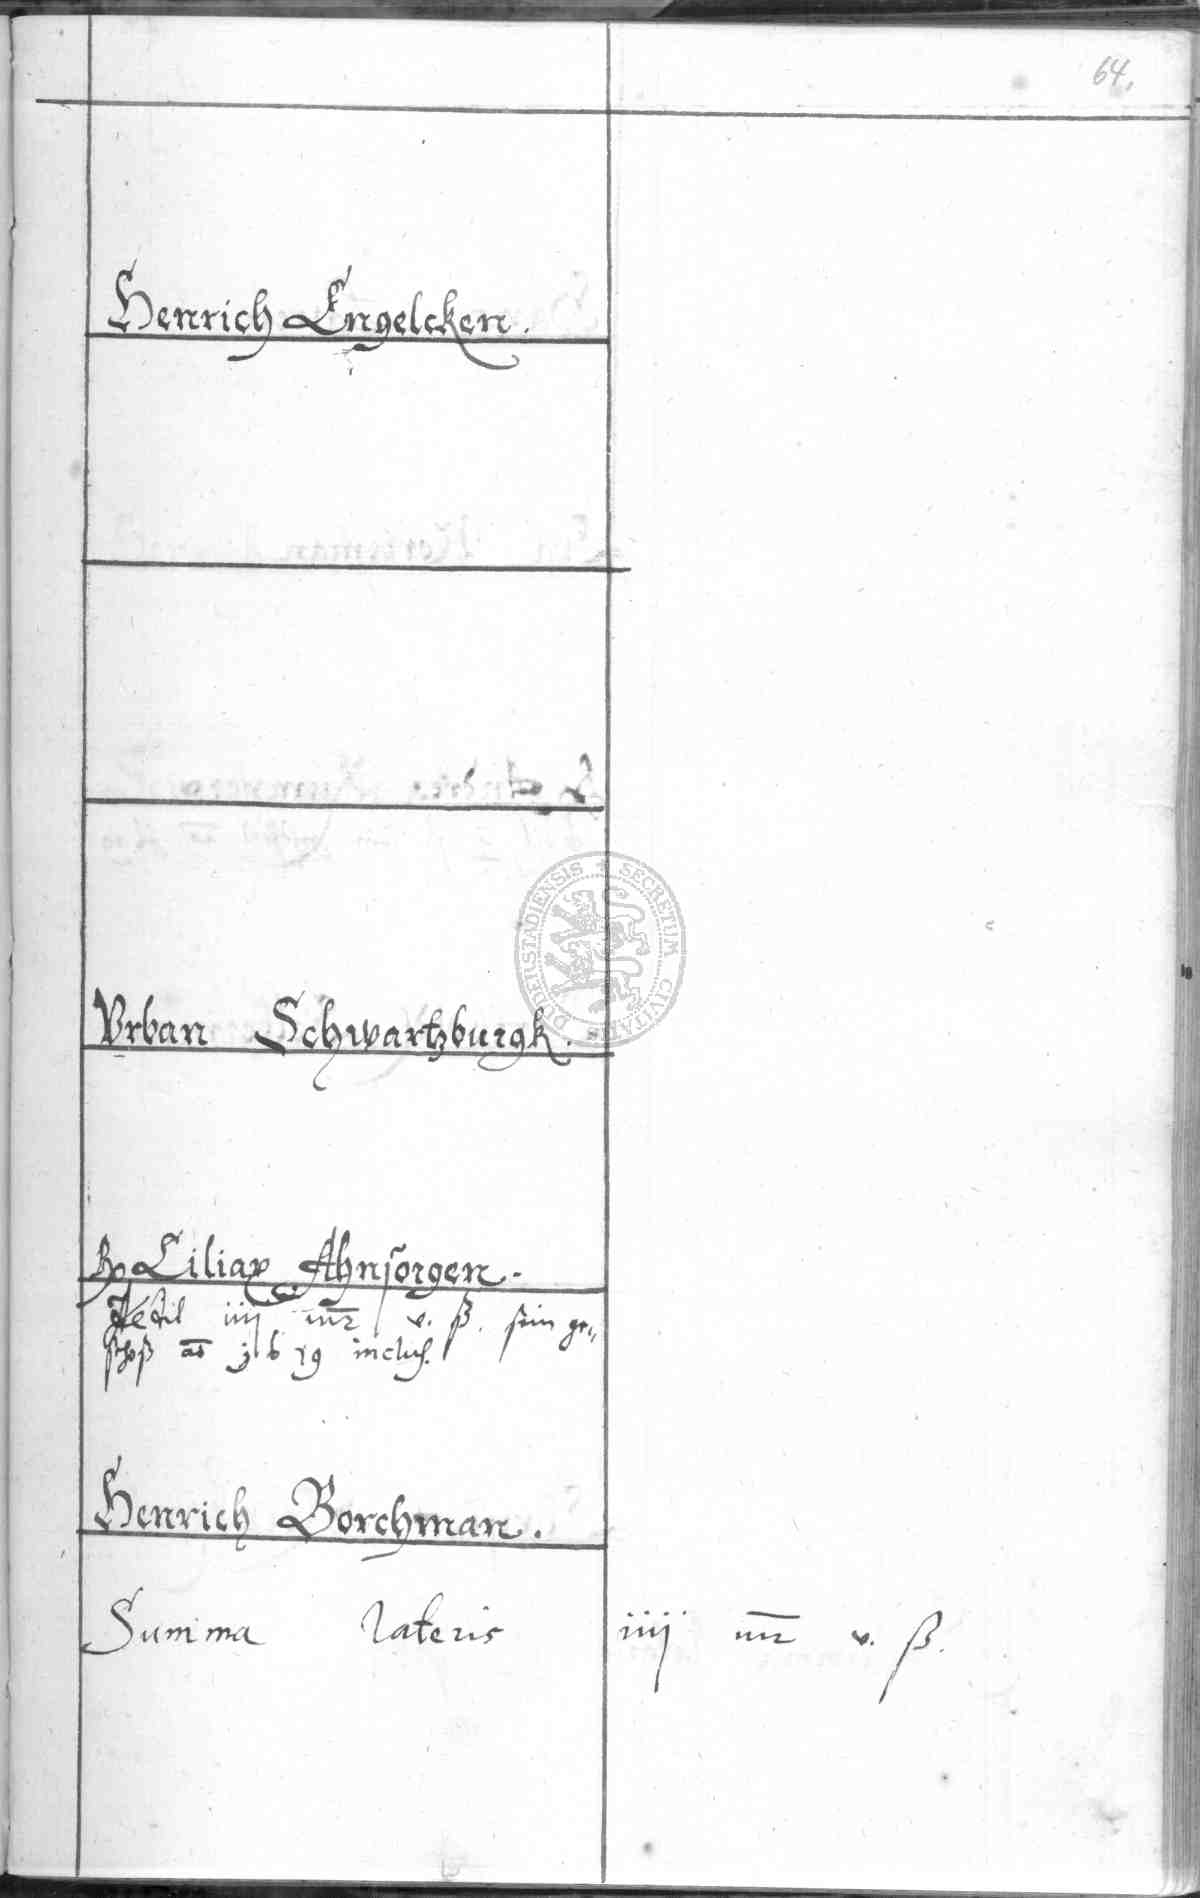 64.
Henrich Engelcken.
Vrban Schwartzburgk.
Ciliax Ahnsorgen.
dedit iiij mr v. ß. sein ge„
schoß ao inclus.
Henrich Borchman.
Summa lateris iiij mr v. ß.
SECRETUM CIVITATIS DUDERSTADIENSIS